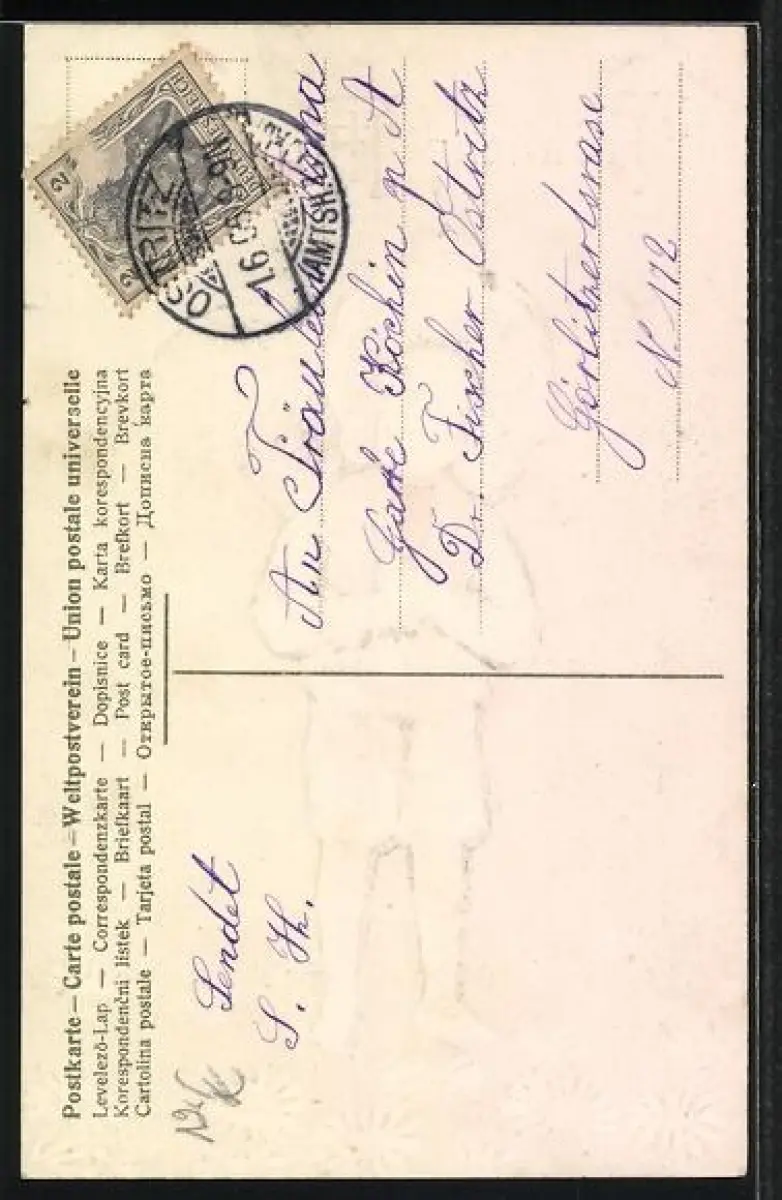 Postkarte — Carte postale — Weltpostverein — Union postale universelle
Levelező-Lap — Correspondenzkarte — Dopisnice — Karta korespondencyjna
Korespondenční lístek — Briefkaart — Post card — Brefkort — Brevkort
Cartolina postale — Tarjeta postal — Открытое-письмо — Дописна карта
2 2
DEUTSCHES REICH
OSTRITZ
16 05
(AMTSH.
An Fräulein
Köchin p A
Dr. Fischer Ostritz
Görlitzerstrase
N 112
Sendet
S. Th.